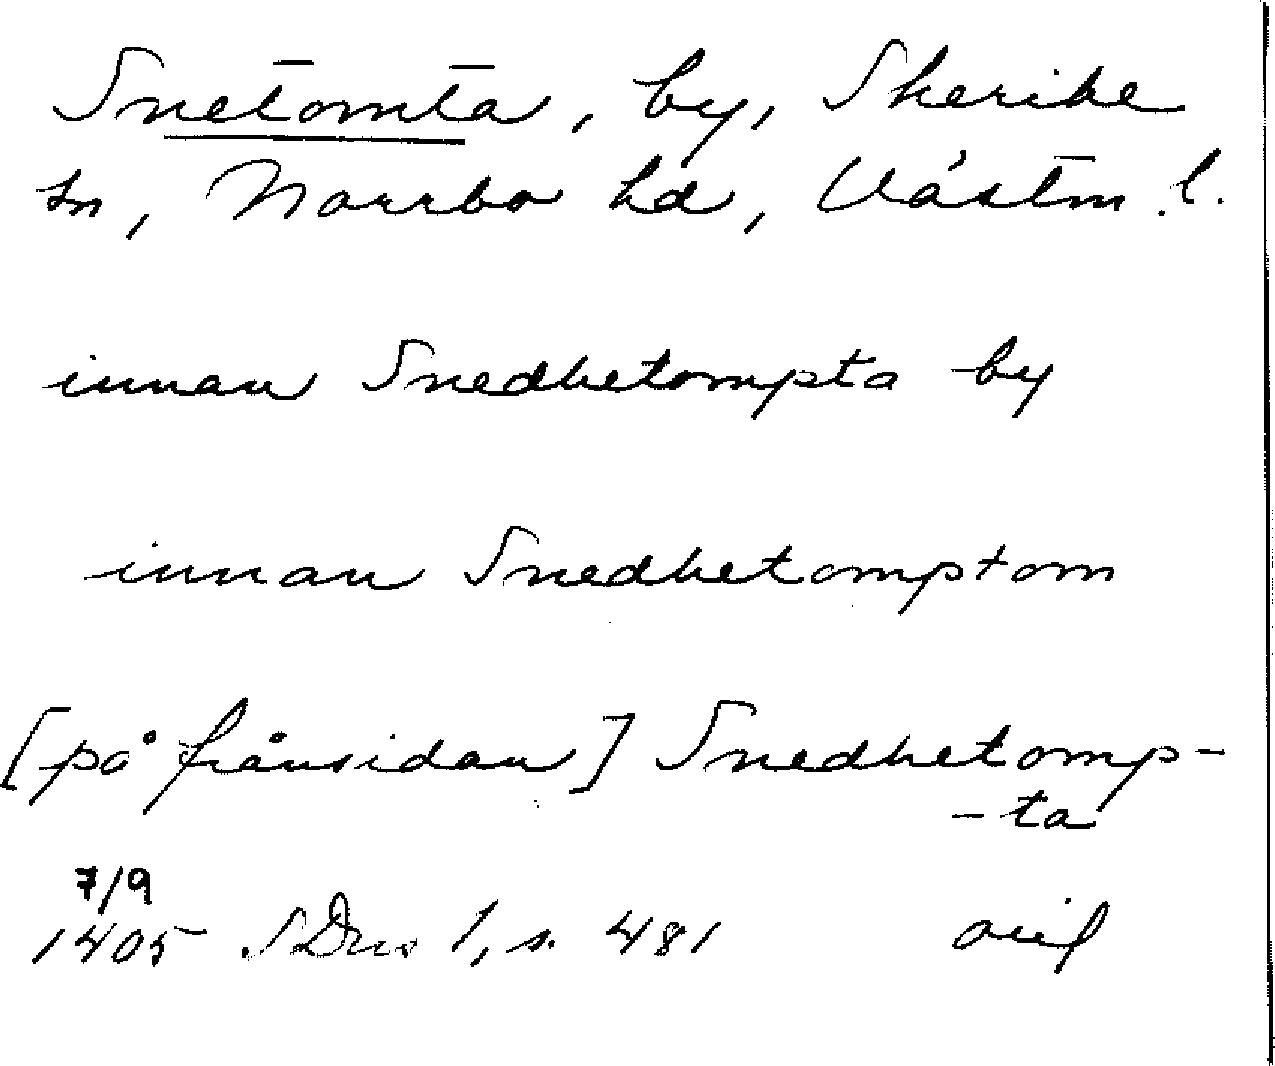 Snetomta, by, Skerike
sn, Norrbo hd, Västm. l.
innan Snedhetompta by
innan Snedhetomptom
[på frånsidan] Snedhetomp-
-ta
7/9
1405 SDns 1, s. 481 orig